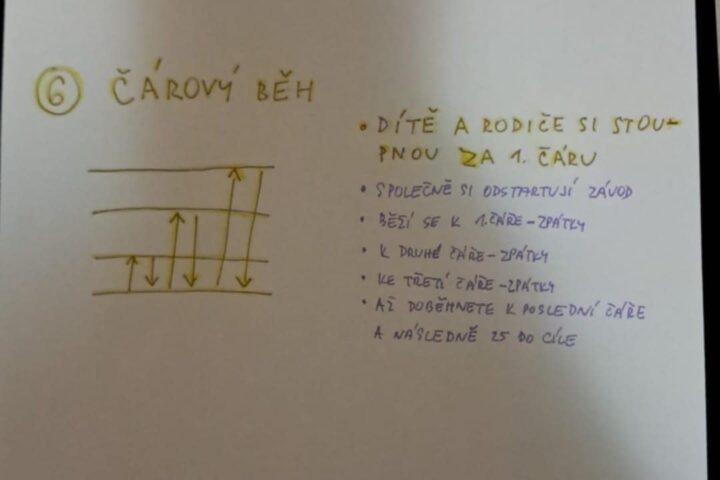 6 ČÁROVÝ BĚH
• DÍTĚ A RODIČE SI STOU-
PNOU ZA 1. ČÁRU
• SPOLEČNĚ SI ODSTARTUJÍ ZÁVOD
• BĚŽÍ SE K 1.ČÁŘE-ZPÁTKY
• K DRUHÉ ČÁŘE-ZPÁTKY
• KE TŘETÍ ČÁŘE-ZPÁTKY
• AŽ DOBĚHNETE K POSLEDNÍ ČÁŘE
A NÁSLEDNĚ DO CÍLE